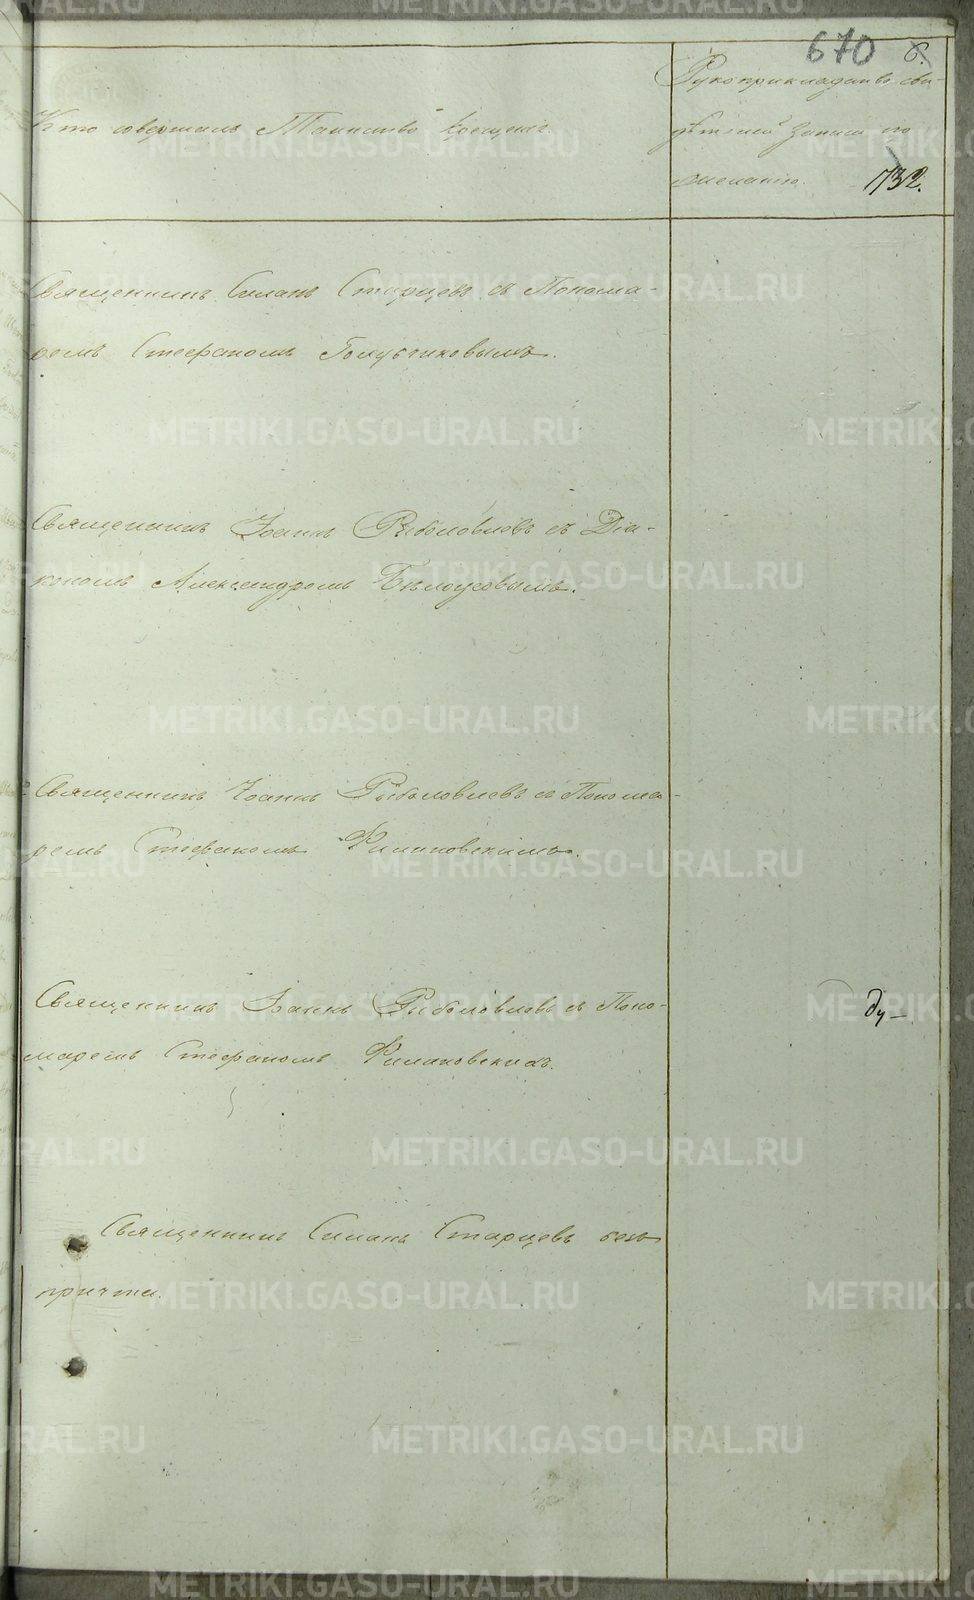 670 6.
Кто совершалъ Таинство крещенiя.
Рукоприкладство сви-
дѣтелей записи по
желанiю.
732.
Священникъ Силанъ Старцевъ съ Понома-
ремъ Стефаномъ Голубчиковымъ.
Священникъ Iоаннъ Рыболовлевъ съ Дiа-
кономъ Александромъ Бѣлоусовымъ.
Священникъ Iоаннъ Рыболовлевъ съ Понома-
ремъ Стефаномъ
Священникъ Iоаннъ Рыболовлевъ съ Поно-
маремъ Стефаномъ
ду-
Священникъ Силанъ Старцевъ безъ
причта.
METRIKI.GASO-URAL.RU